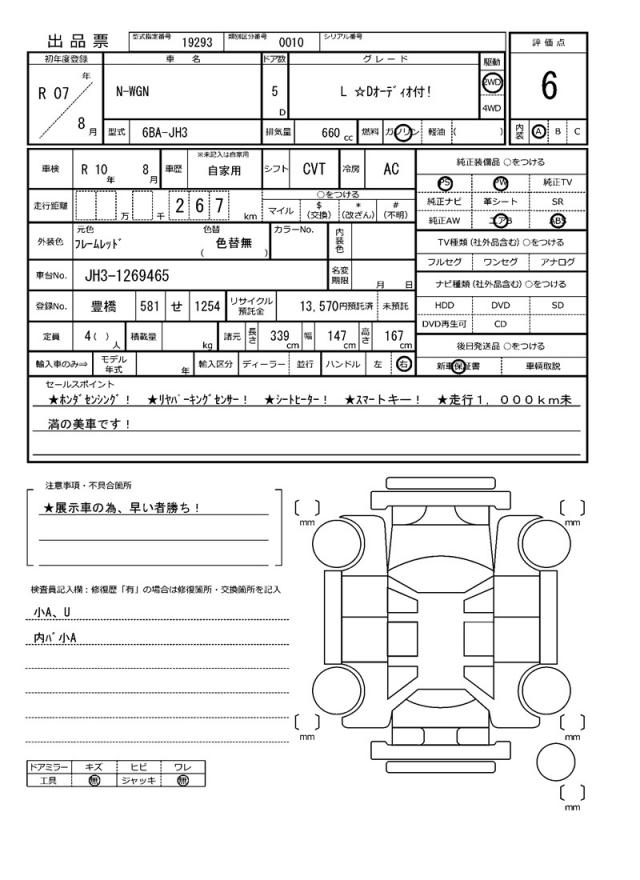 出品票
型式指定番号 19293 類別区分番号 0010 シリアル番号
評価点
6
内装 A B C
初年度登録 車名 ドア数 グレード 駆動
R 07 年 8 月
N-WGN 5 D L ☆Dオーディオ付! 2WD 4WD
型式 6BA-JH3 排気量 660 cc 燃料 ガソリン 軽油 ( )
車検 R 10 年 8 月 車歴 ※未記入は自家用 自家用 シフト CVT 冷房 AC
走行距離 万 千 267 km
○をつける
マイル $ (交換) * (改ざん) # (不明)
外装色 元色 フレームレッド 色替 ( 色替無 ) カラーNo. 内装色
車台No. JH3-1269465 名変期限 月 日
登録No. 豊橋 581 せ 1254 リサイクル預託金 13,570円預託済 未預託
定員 4( ) 人 積載量 kg 諸元 長さ 339 cm 幅 147 cm 高さ 167 cm
輸入車のみ⇒ モデル年式 年 輸入区分 ディーラー 並行 ハンドル 左 右
純正装備品 ○をつける
PS PW 純正TV
純正ナビ 革シート SR
純正AW エアB ABS
TV種類(社外品含む)○をつける
フルセグ ワンセグ アナログ
ナビ種類(社外品含む)○をつける
HDD DVD SD
DVD再生可 CD
後日発送品 ○をつける
新車保証書 車輌取説
セールスポイント
★ホンダセンシング! ★リヤパーキングセンサー! ★シートヒーター! ★スマートキー! ★走行1,000km未
満の美車です!
注意事項・不具合箇所
★展示車の為、早い者勝ち!
検査員記入欄:修復歴「有」の場合は修復箇所・交換箇所を記入
小A、U
内バ小A
ドアミラー キズ ヒビ ワレ
工具 無 ジャッキ 無
[ ] mm
[ ] mm
[ ] mm
[ ] mm
[ ] mm